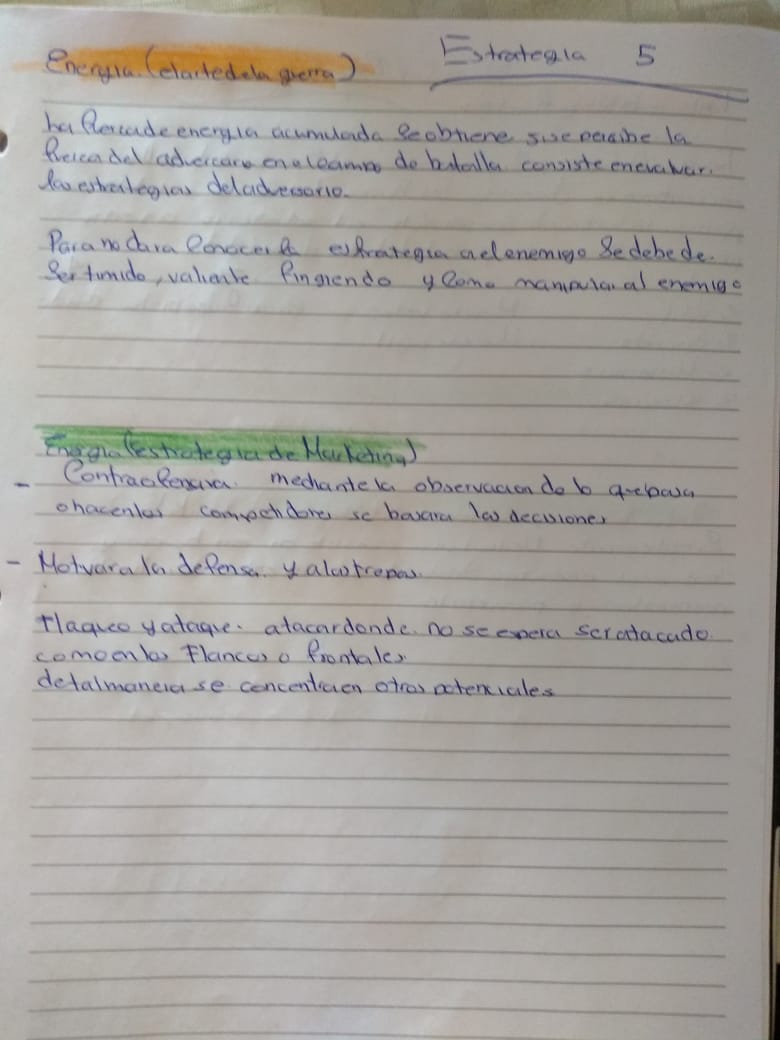 Energia (el arte de la guerra) Estrategia 5
La fuerza de energia acumulada se obtiene si se percibe la
fuerza del adversario en el campo de batalla consiste en evaluar
las estrategias del adversario.
Para no dar a conocer la estrategia a el enemigo se debe de
ser timido, valiente fingiendo y como manipular al enemigo
Energia (estrategia de Marketing)
- Contraofensiva mediante la observacion de lo que pasa
o hacen los competidores se basara las decisiones
- Motivara la defensa y a las tropas
Flaqueo y ataque. atacar donde no se espera ser atacado
como en los Flancos o frontales
de tal manera se concentra en otros potenciales